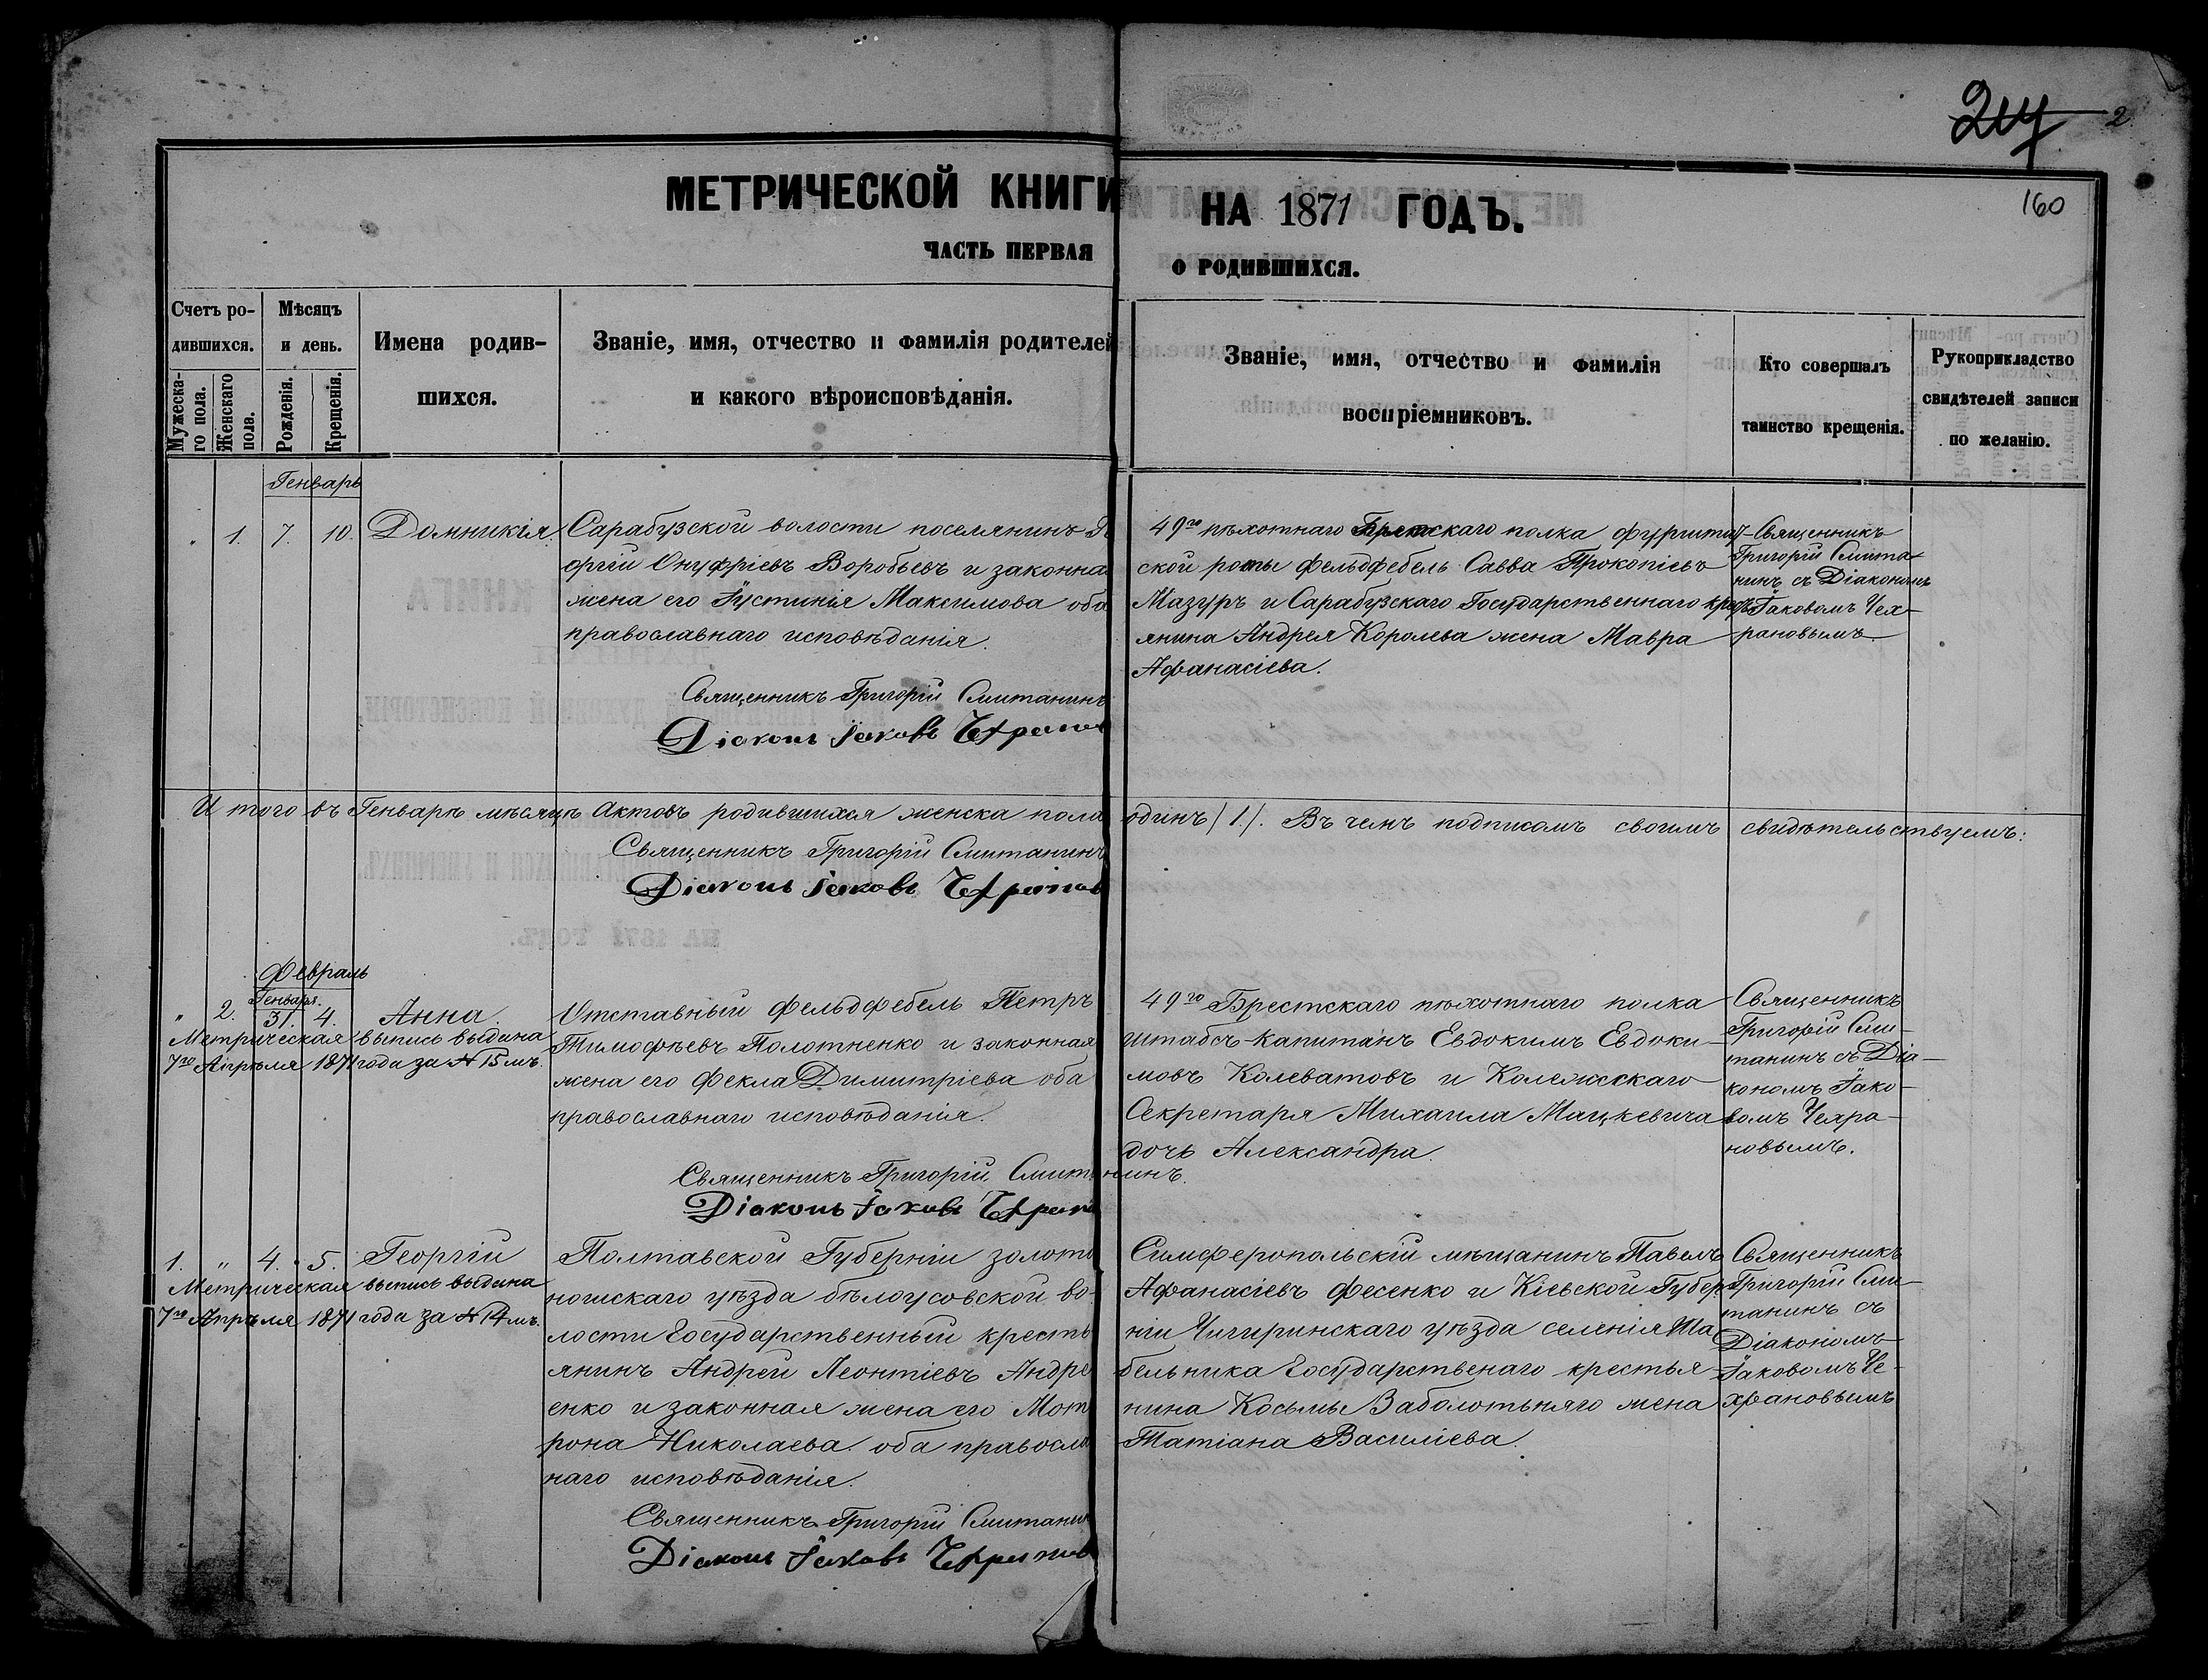 217 2
160
МЕТРИЧЕСКОЙ КНИГИ НА 1871 ГОДЪ.
ЧАСТЬ ПЕРВАЯ О РОДИВШИХСЯ.
Счетъ ро-
дившихся.
Мужеска-
го пола.
Женскаго
пола.
Мѣсяцъ
и день.
Рожденія.
Крещенія.
Имена родив-
шихся.
Званіе, имя, отчество и фамилія родителей
и какого вѣроисповѣданія.
Званіе, имя, отчество и фамилія
воспріемниковъ.
Кто совершалъ
таинство крещенія.
Рукоприкладство
свидѣтелей записи
по желанію.
Генварь
" 1. 7. 10. Домникія.
Сарабузской волости поселянинъ Ге
оргій Онуфріевъ Воробьевъ и законная
жена его Іустинія Максимова оба
православнаго исповѣданія.
Священникъ Григорій Смитанинъ
Діаконъ Іаковъ Чехранов
49го пѣхотнаго Брестскаго полка фурштат-
ской роты фельдфебель Савва Прокопіевъ
Мазуръ и Сарабузскаго Государственнаго крест
янина Андрея Королева жена Мавра
Афанасіева.
Священникъ
Григорій Смита-
нинъ съ Діакономъ
Іаковомъ Чех-
рановымъ.
И того въ Генварѣ мѣсяцѣ актовъ родившихся женска пола одинъ /1./. Въ чемъ подписомъ своимъ свидѣтельствуемъ:
Священникъ Григорій Смитанинъ
Діаконъ Іаковъ Чехранов
Февраль
Генваря.
" 2. 31. 4. Анна
Метрическая выпись выдана
7го Апрѣля 1871 года за № 15мъ.
Отставный фельдфебель Петръ
Тимофѣевъ Полотненко и законная
жена его Фекла Димитріева оба
православнаго исповѣданія.
Священникъ Григорій Смитанинъ.
Діаконъ Іаковъ Чехранов
49го Брестскаго пѣхотнаго полка
штабсъ-капитанъ Евдокимъ Евдоки-
мовъ Колеватовъ и Колежскаго
Секретаря Михаила Мацкевича
дочь Александра.
Священникъ
Григорій Сми-
танинъ съ Діа-
кономъ Іако-
вомъ Чехра-
новымъ.
1. " 4. 5. Георгій
Метрическая выпись выдана
7го Апрѣля 1871 года за № 14мъ.
Полтавской Губерніи золото
ношскаго уѣзда бѣлоусовской во-
лости Государственный кресть
янинъ Андрей Леонтіевъ Андре
енко и законная жена его Мот
рона Николаева оба правосла
наго исповѣданія.
Священникъ Григорій Смитанин
Діаконъ Іаковъ Чехранов
Симферопольскій мѣщанинъ Павелъ
Афанасіевъ Фесенко и Кіевской Губер
ніи Чигиринскаго уѣзда селенія Ша
бельника Государственаго крестья-
нина Косьмы Заболотьняго жена
Татіана Василіева.
Священникъ
Григорій Сми-
танинъ съ
Діакономъ
Іаковомъ Че-
храновымъ